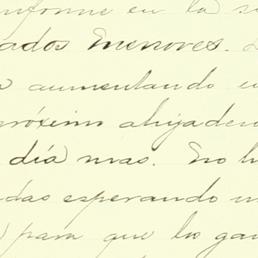 informe en la s
ados menores.
aumentando
próximo ahijadero
día mas. No h
das esperando
para que los gan